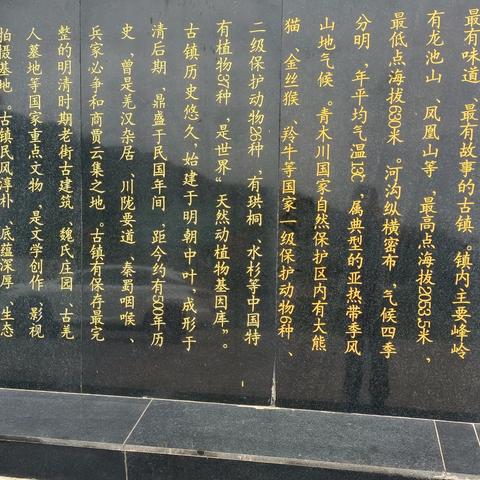 最有味道、最有故事的古镇。镇内主要峰岭
有龙池山、凤凰山等，最高点海拔2033.5米，
最低点海拔630米。河沟纵横密布，气候四季
分明，年平均气温13℃，属典型的亚热带季风
山地气候。青木川国家自然保护区内有大熊
猫、金丝猴、羚牛等国家一级保护动物6种、
二级保护动物26种，有珙桐、水杉等中国特
有植物37种，是世界“天然动植物基因库”。
古镇历史悠久，始建于明朝中叶，成形于
清后期，鼎盛于民国年间，距今约有500年历
史，曾是羌汉杂居、川陇要道、秦蜀咽喉、
兵家必争和商贾云集之地。古镇有保存最完
整的明清时期老街古建筑、魏氏庄园、古羌
人墓地等国家重点文物，是文学创作、影视
拍摄基地。古镇民风淳朴、底蕴深厚、生态